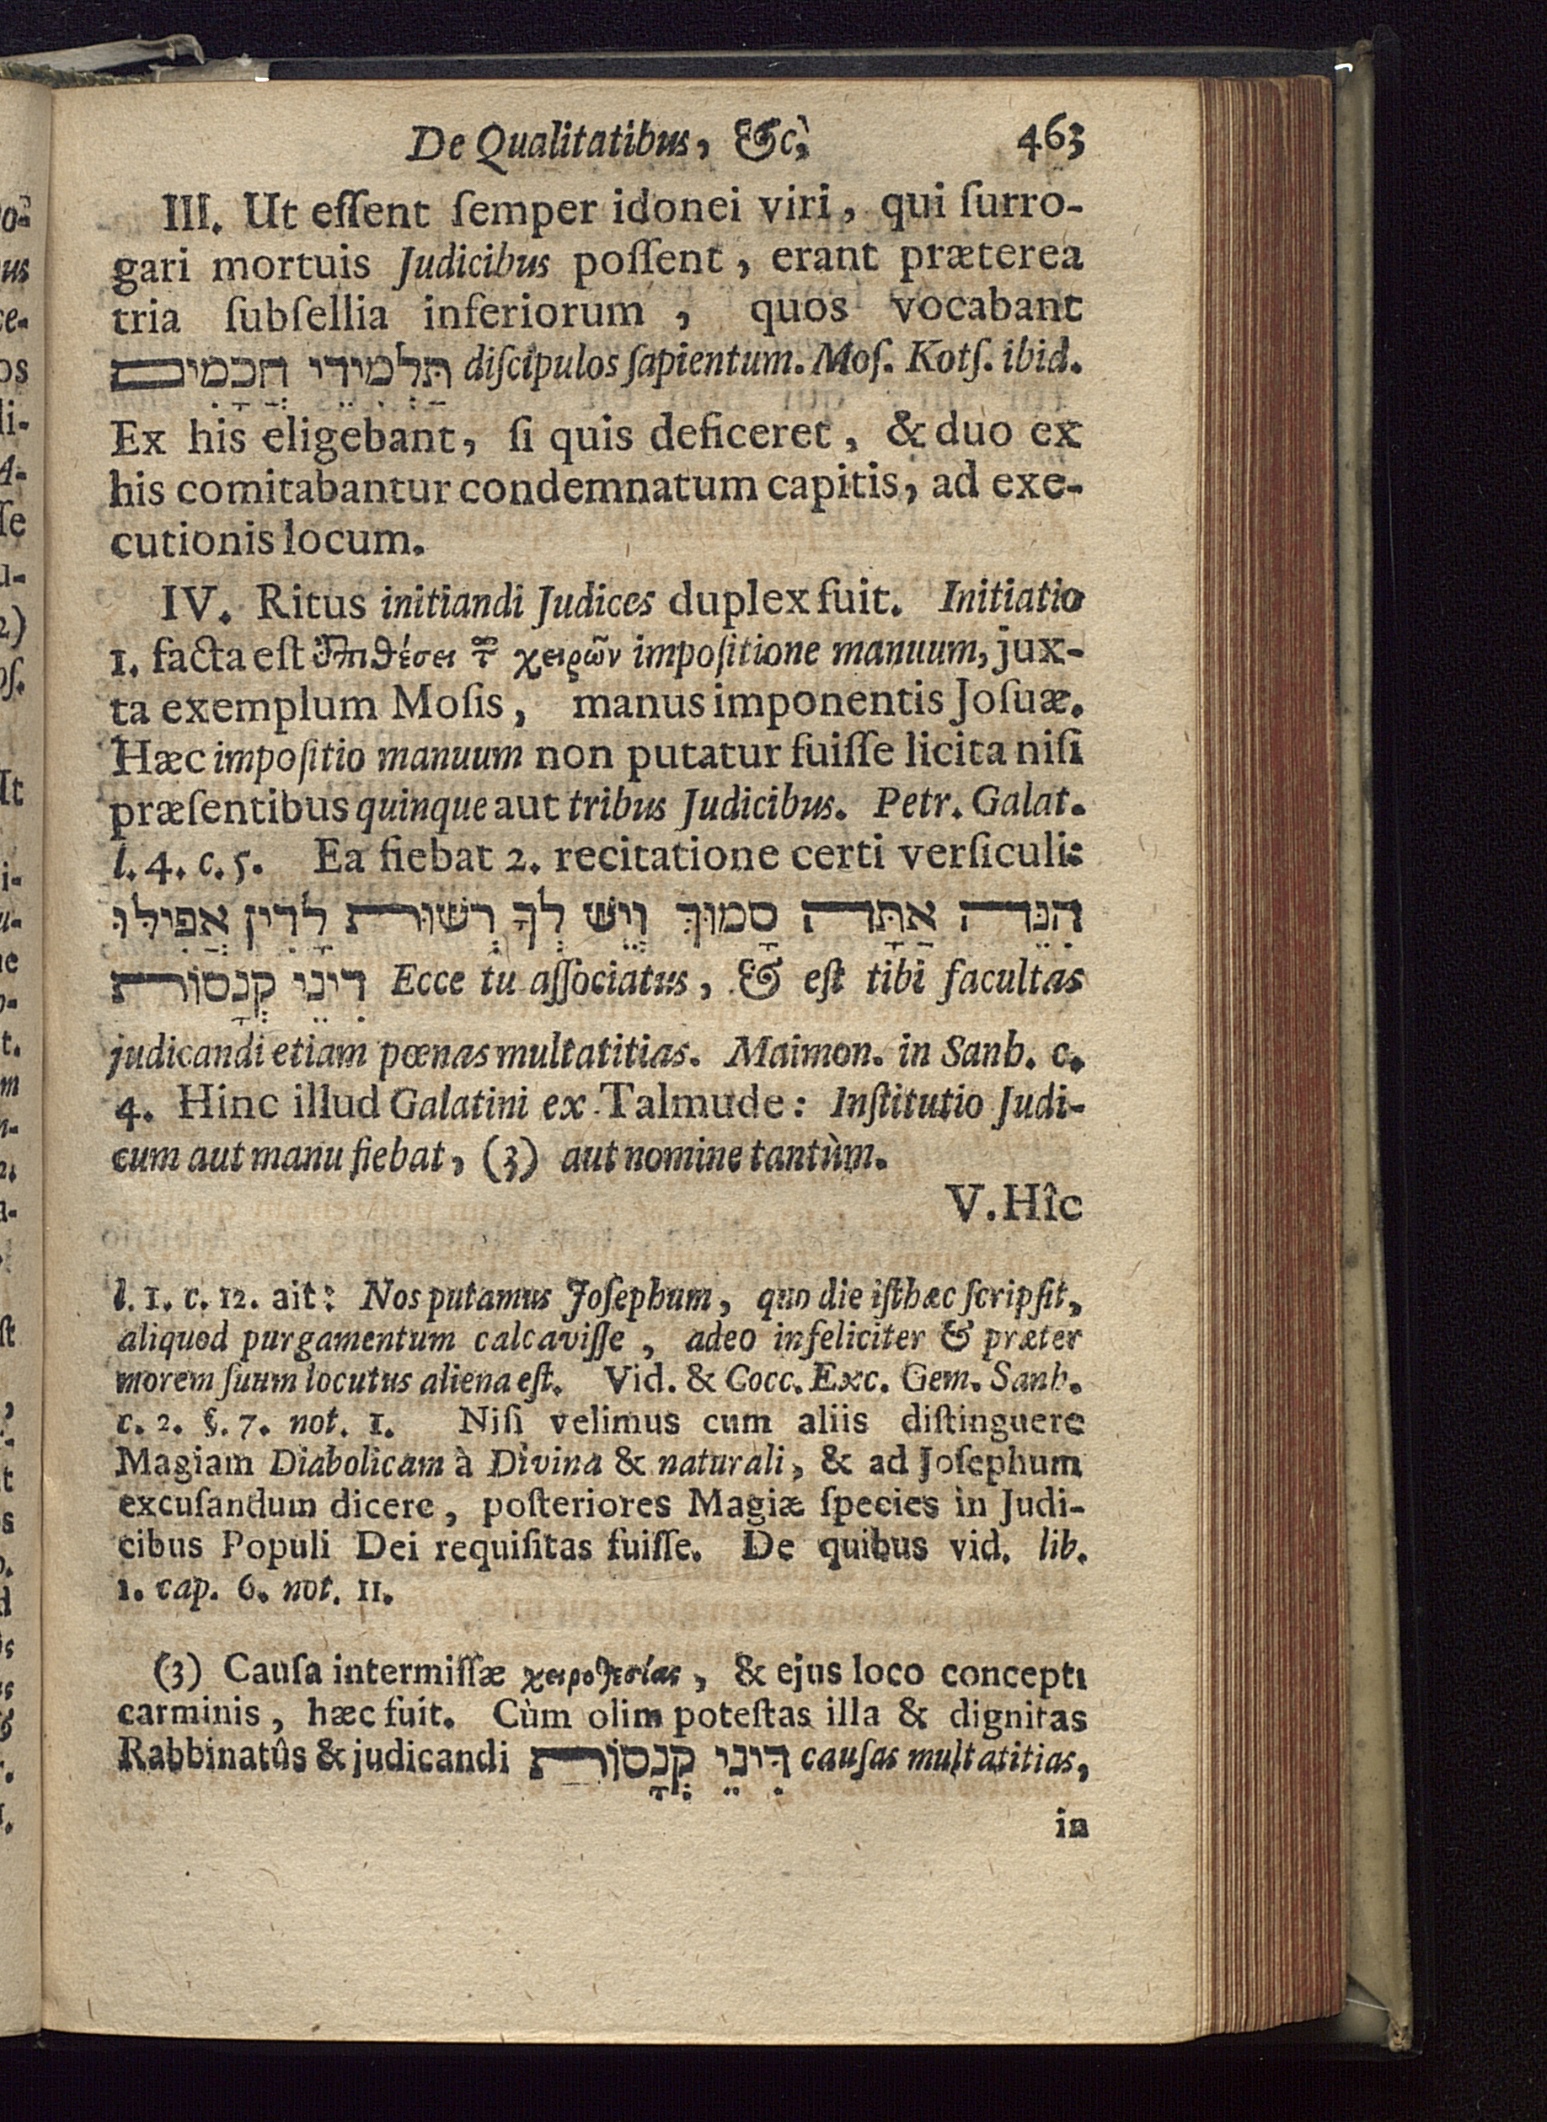 De Qualitatibus, &c, 463
III. Ut eſſent ſemper idonei viri, qui ſurro-
gari mortuis Judicibus poſſent, erant præterea
tria ſubſellia inferiorum, quos vocabant
תַּלְמִידֵי חֲכָמִים diſcipulos ſapientum. Moſ. Kotſ. ibid.
Ex his eligebant, ſi quis deficeret, & duo ex
his comitabantur condemnatum capitis, ad exe-
cutionis locum.
IV. Ritus initiandi Judices duplex fuit. Initiatio
1. facta eſt ἐπιθέσει τ῀ χειρῶν impoſitione manuum, jux-
ta exemplum Moſis, manus imponentis Joſuæ.
Hæc impoſitio manuum non putatur fuiſſe licita niſi
præſentibus quinque aut tribus Judicibus. Petr. Galat.
l. 4. c. 5. Ea fiebat 2. recitatione certi verſiculi:
הִנֵּה אַתָּה סָמוּךְ וְיֵשׁ לְךָ רְשׁוּת לָדִין אֲפִילוּ
דִּינֵי קְנָסוֹת Ecce tu aſſociatus, & eſt tibi facultas
judicandi etiam pœnas multatitias. Maimon. in Sanb. c.
4. Hinc illud Galatini ex Talmude: Inſtitutio Judi-
cum aut manu fiebat, (3) aut nomine tantùm.
V. Hîc
l. 1. c. 12. ait: Nos putamus Joſephum, quo die iſthæc ſcripſit,
aliquod purgamentum calcaviſſe, adeo infeliciter & præter
morem ſuum locutus aliena eſt. Vid. & Cocc. Exc. Gem. Sanh.
c. 2. §. 7. not. 1. Niſi velimus cum aliis diſtinguere
Magiam Diabolicam à Divina & naturali, & ad Joſephum
excuſandum dicere, poſteriores Magiæ ſpecies in Judi-
cibus Populi Dei requiſitas fuiſſe. De quibus vid. lib.
1. cap. 6. not. 11.
(3) Cauſa intermiſſæ χειροθεσίας, & ejus loco concepti
carminis, hæc fuit. Cùm olim poteſtas illa & dignitas
Rabbinatûs & judicandi דִּינֵי קְנָסוֹת cauſas multatitias,
in